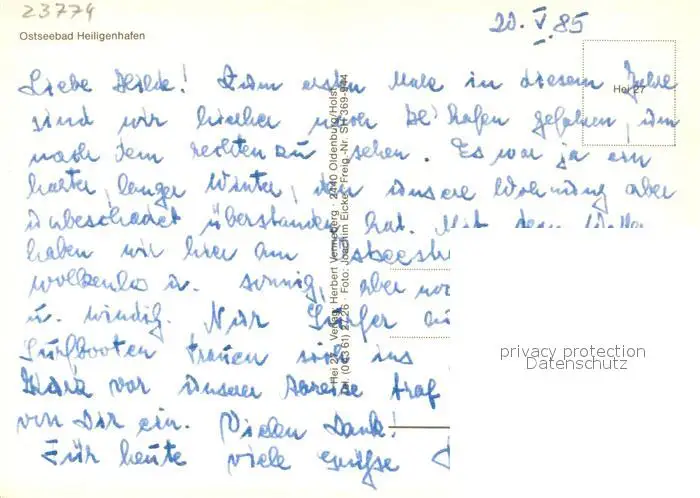 23774
20. V. 85
Ostseebad Heiligenhafen
Hei 27
Liebe Hilde! Zum ersten Male in diesem Jahre
sind wir hierher nach Hei'hafen gefahren, um
nach dem rechten zu sehen. Es war ja ein
harter, langer Winter, den unsere Wohnung aber
unbeschadet überstanden hat. Mit dem
haben wir hier am
wolkenlos u. sonnig, aber
u. windig. Nur Surfer
Surfbooten trauen sich ins
vor unserer Abreise traf
von Dir ein. Vielen Dank!
Für heute viele Grüße
Hei 27 · Verlag: Herbert Vermehren · 2440 Oldenburg/Holst.
Tel. (04361) 2426 · Foto: Joachim Eicke · Freig.-Nr. SH 369-944
privacy protection
Datenschutz